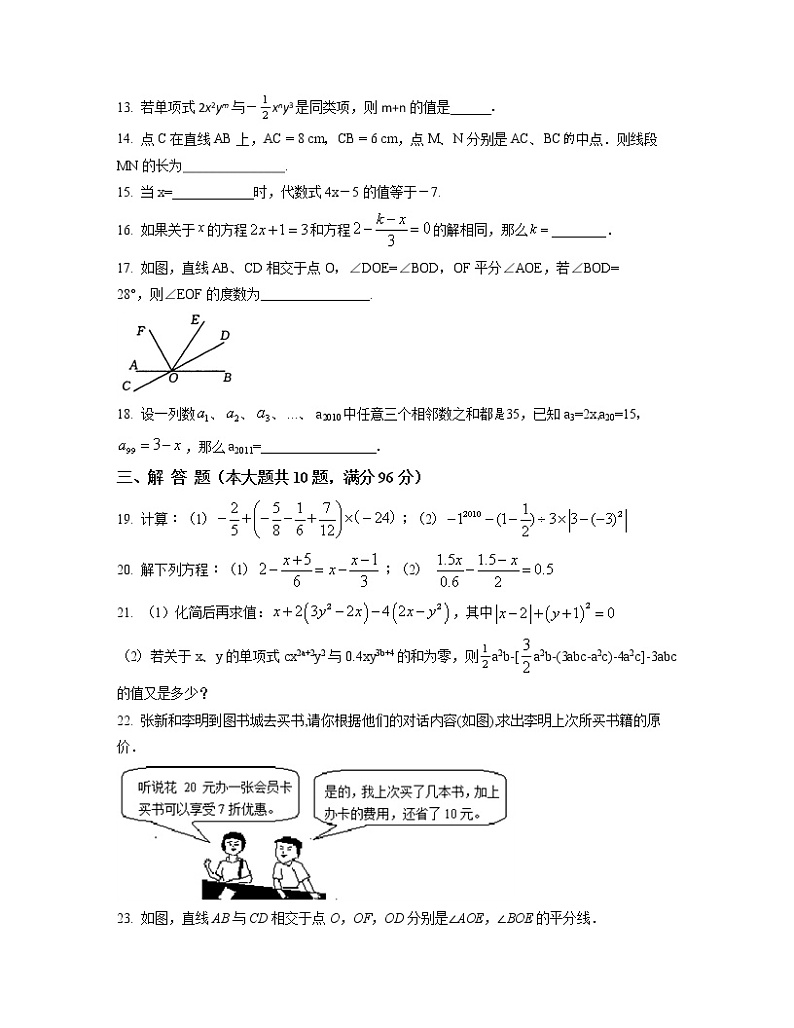 13. 若单项式 2x²yᵐ 与 −1/2 xⁿy³ 是同类项，则 m+n 的值是______．
14. 点 C 在直线 AB 上，AC = 8 cm，CB = 6 cm，点 M、N 分别是 AC、BC 的中点．则线段
MN 的长为________________.
15. 当 x=____________时，代数式 4x－5 的值等于－7.
16. 如果关于 x 的方程 2x+1=3 和方程 2−(k−x)/3=0 的解相同，那么 k = ________．
17. 如图，直线 AB、CD 相交于点 O，∠DOE=∠BOD，OF 平分∠AOE，若∠BOD=
28°，则∠EOF 的度数为________________.
F E D
A O B
C
18. 设一列数 a₁、 a₂、 a₃、 …、 a₂₀₁₀ 中任意三个相邻数之和都是 35，已知 a₃=2x,a₂₀=15，
a₉₉ = 3−x ，那么 a₂₀₁₁=_________________．
三、解 答 题（本大题共 10 题，满分 96 分）
19. 计算：（1） −2/5+(−5/8−1/6+7/12)×(−24)；（2） −1²⁰¹⁰−(1−1/2)÷3×|3−(−3)²|
20. 解下列方程：（1） 2−(x+5)/6= x−(x−1)/3；（2） 1.5x/0.6−(1.5−x)/2=0.5
21. （1）化简后再求值：x+2(3y²−2x)−4(2x−y²)，其中 |x−2|+(y+1)²=0
（2）若关于 x、y 的单项式 cx²ᵃ⁺²y² 与 0.4xy³ᵇ⁺⁴ 的和为零，则 1/2 a²b-[ 3/2 a²b-(3abc-a²c)-4a²c]-3abc
的值又是多少？
22. 张新和李明到图书城去买书,请你根据他们的对话内容(如图),求出李明上次所买书籍的原
价．
听说花 20 元办一张会员卡
买书可以享受 7 折优惠。
是的，我上次买了几本书，加上
办卡的费用，还省了 10 元。
23. 如图，直线 AB 与 CD 相交于点 O，OF，OD 分别是∠AOE，∠BOE 的平分线．